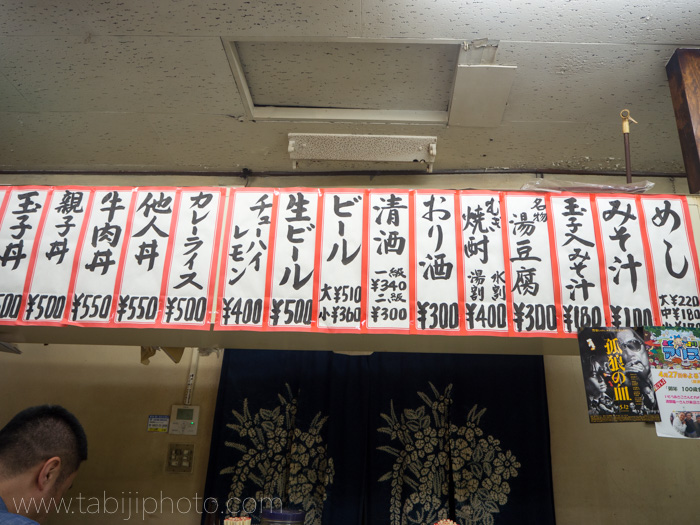 めし
大¥220
中¥180
小¥1
みそ汁
¥100
玉子入みそ汁
¥180
名物
湯豆腐
¥300
むぎ
焼酎
水割
湯割
¥400
おり酒
¥300
清酒
一級
¥340
二級
¥300
ビール
大¥510
小¥360
生ビール
¥500
チューハイ
レモン
¥400
カレーライス
¥500
他人丼
¥550
牛肉丼
¥550
親子丼
¥500
玉子丼
500
孤狼の血
www.tabijiphoto.com